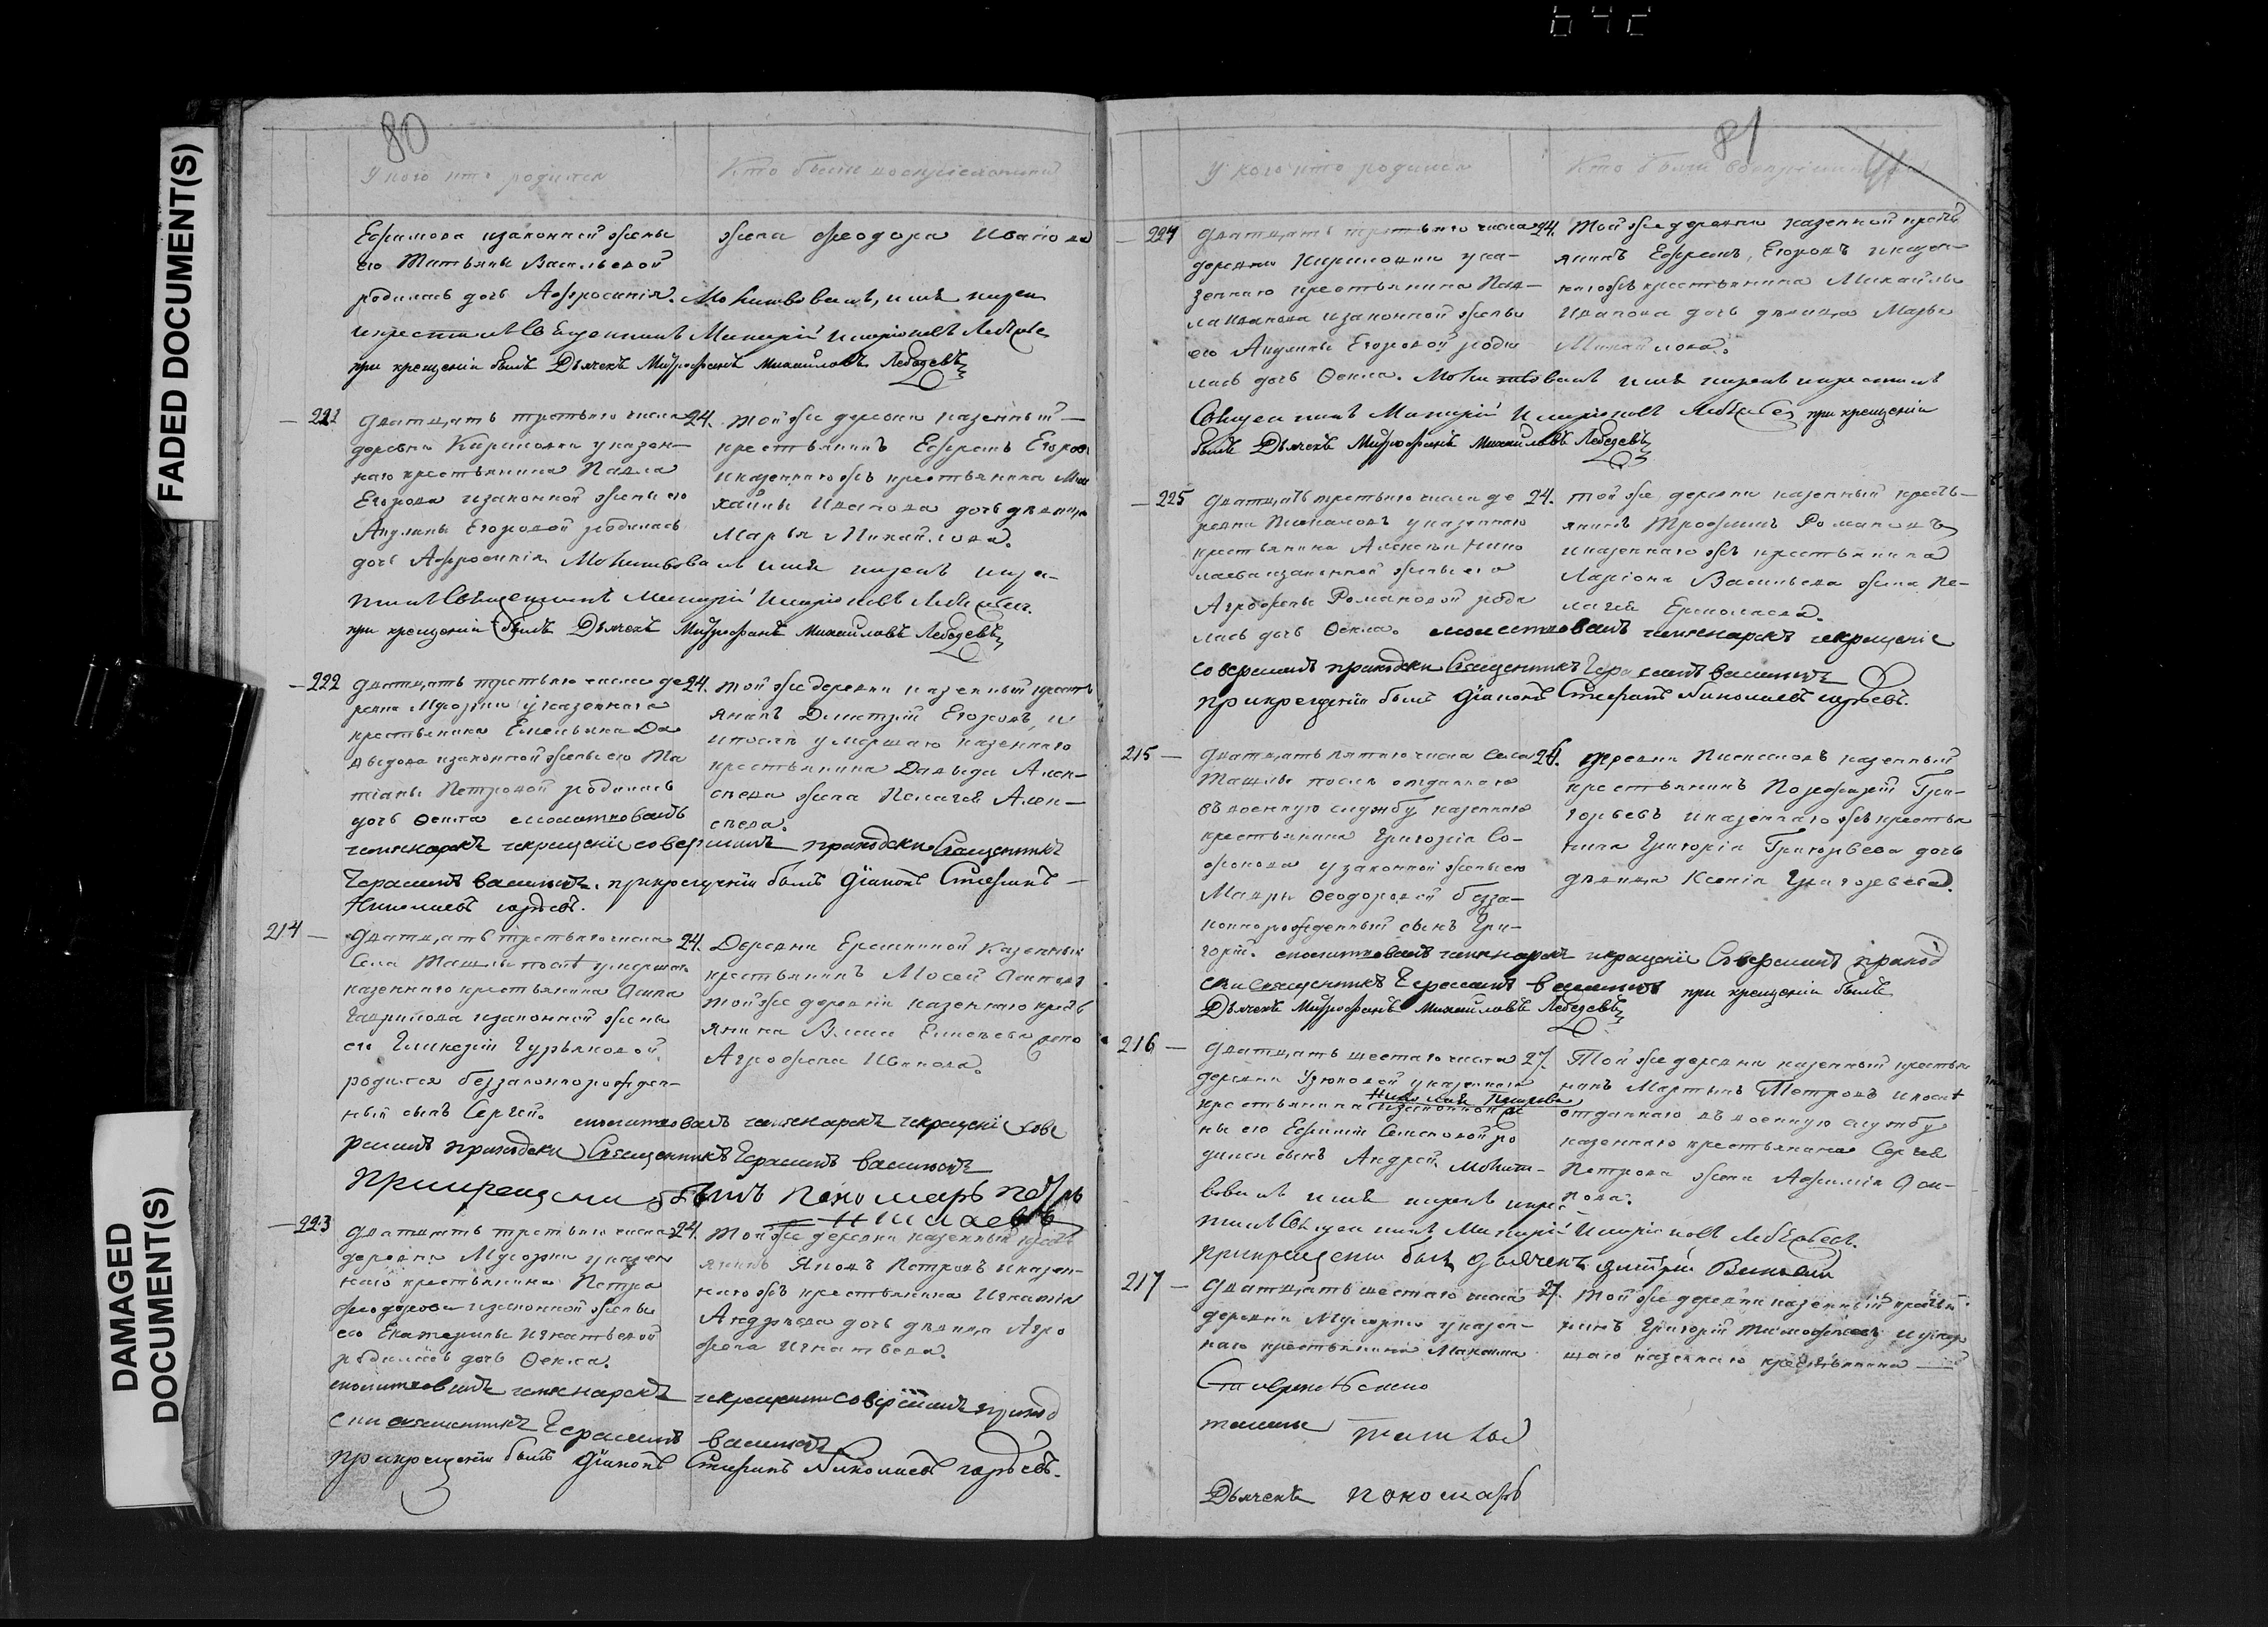 FADED DOCUMENT(S)
DAMAGED DOCUMENT(S)
80
У кого кто родился
Кто были восприемники
Ефимова и законной жены
его Татьяны Васильевой
родилась дочь Афросинія. Молитвовалъ, имя нарек
и крестилъ Священникъ
при крещеніи былъ Дьячекъ Митрофанъ Михаиловъ Лебедевъ
жена Феодора Иванова
221
Двадцать третьяго числа
деревни Кириловки у казен-
наго крестьянина Павла
Егорова и законной жены его
Акулины Егоровой родилась
дочь Афросинія. Молитвовалъ имя нарекъ и кре-
стилъ Священникъ
при крещеніи былъ Дьячекъ Митрофанъ Михаиловъ Лебедевъ
24. Той же деревни казенный
крестьянинъ Ефремъ Егоров
и казеннаго жъ крестьянина Ми
хайлы Иванова дочь девица
Марья Михайлова.
222
Двадцать третьяго числа де
ревни Мусорки у казеннаго
крестьянина Емельяна Да
выдова и законной жены его Та
тіаны Петровой родилась
дочь Фекла молитвовалъ
имя нарекъ и крещеніе совершилъ приходски Священникъ
Герасимъ Васильевъ. при крещеніи былъ Діаконъ Стефанъ
Николаевъ
24. Той же деревни казенный кресть
янинъ Димитрій Егоровъ, и
и после умершаго казеннаго
крестьянина Давыда Алек-
сеева жена Пелагея Алек-
сеева.
214
Двадцать третьяго числа
Села Ташлы после умершаго
казеннаго крестьянина Осипа
Гаврилова и законной жены
его Гликеріи Гурьяновой
родился беззаконнорожден-
ный сынъ Сергей. молитвовалъ имя нарекъ и крещеніе сове
ршилъ приходски Священникъ Герасимъ Васильевъ
При крещеніи былъ Пономарь Петръ
Николаевъ
24. Деревни Еремкиной казенный
крестьянинъ Мосей Антонов
той же деревни казеннаго кресть
янина Власа Елисеева
Агрофена Иванова.
223
Двадцать третьяго числа
деревни Мусорки у казен
наго крестьянина Петра
Феодорова и законной жены
его Екатерины Игнатьевой
родилась дочь Фекла.
молитвовалъ имя нарекъ и крещеніе совершилъ приход
ски священникъ Герасимъ Васильевъ
при крещеніи былъ Діаконъ Стефанъ Николаевъ
24. Той же деревни казенный кресть
янинъ Яковъ Петровъ и казен-
наго жъ крестьянина Игнатія
Андреева дочь девица Агро
фена Игнатьева.
81
У кого кто родился
Кто были восприемники
224
Двадцать третьяго числа
деревни Кириловки у ка-
зеннаго крестьянина Пав-
ла Иванова и законной жены
его Акулины Егоровой роди
лась дочь Фекла. Молитвовалъ имя нарекъ и крестилъ
Священникъ при крещеніи
былъ Дьячекъ Митрофанъ Михаиловъ Лебедевъ
24. Той же деревни казенной кресть
янинъ Ефремъ Егоровъ и казен-
наго жъ крестьянина Михайлы
Иванова дочь девица Марья
Михайлова.
225
Двадцать третьяго числа де
ревни у казеннаго
крестьянина Алексея Нико
лаева и законной жены его
Агрофены Романовой роди
лась дочь Фекла. молитвовалъ имя нарекъ и крещеніе
совершилъ приходски Священникъ Герасимъ Васильевъ
при крещеніи былъ Діаконъ Стефанъ Николаевъ
24. Той же деревни казенный кресть-
янинъ Трофимъ Романовъ
и казеннаго жъ крестьянина
Ларіона Васильева жена Пе-
лагея Ермолаева.
215
Двадцать пятаго числа Села
Ташлы после отданнаго
въ военную службу казеннаго
крестьянина Григорія Со-
фонова у законной жены его
Мавры Феодоровой безза-
коннорожденный сынъ Гри-
горій. молитвовалъ имя нарекъ и крещеніе Совершилъ приход
ски священникъ Герасимъ Васильевъ при крещеніи былъ
Дьячекъ Митрофанъ Михаиловъ Лебедевъ
26. Деревни казенный
крестьянинъ Порфирій Гри-
горьевъ и казеннаго жъ крестья
нина Григорія Григорьева дочь
девица Ксенія Григорьева.
216
Двадцать шестаго числа
деревни Узюковой у казеннаго
Николая Петрова
крестьянина и законной же
ны его Ефиміи Семеновой ро
дился сынъ Андрей. Молит-
вовалъ имя нарекъ и кре-
стилъ Священникъ
При крещеніи былъ Дьячекъ Дмитрій
27. Той же деревни казенный крестья
нинъ Мартынъ Петровъ и после
отданнаго въ военную службу
казеннаго крестьянина Сергея
Петрова жена Афимія Оси-
пова.
217
Двадцать шестаго числа
деревни Мусорки у казен-
наго крестьянина Максима
27. Той же деревни казенный крестья
нинъ Григорій Тимофеевъ и умер
шаго казеннаго крестьянина
Дьячекъ Пономарь